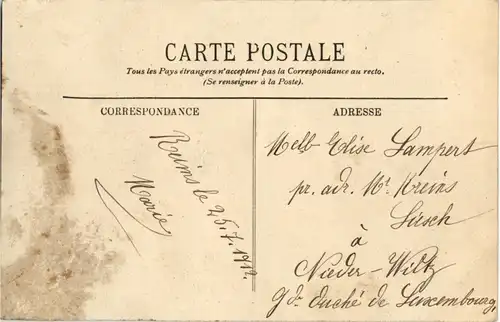 CARTE POSTALE
Tous les Pays étrangers n'acceptent pas la Correspondance au recto.
(Se renseigner à la Poste).
CORRESPONDANCE
Reims le 25.7.1912.
Marie
ADRESSE
Melle Elise Lampert
pr. adr. Mr. Kreins
à
Nieder-Wiltz
Gd. duché de Luxembourg.